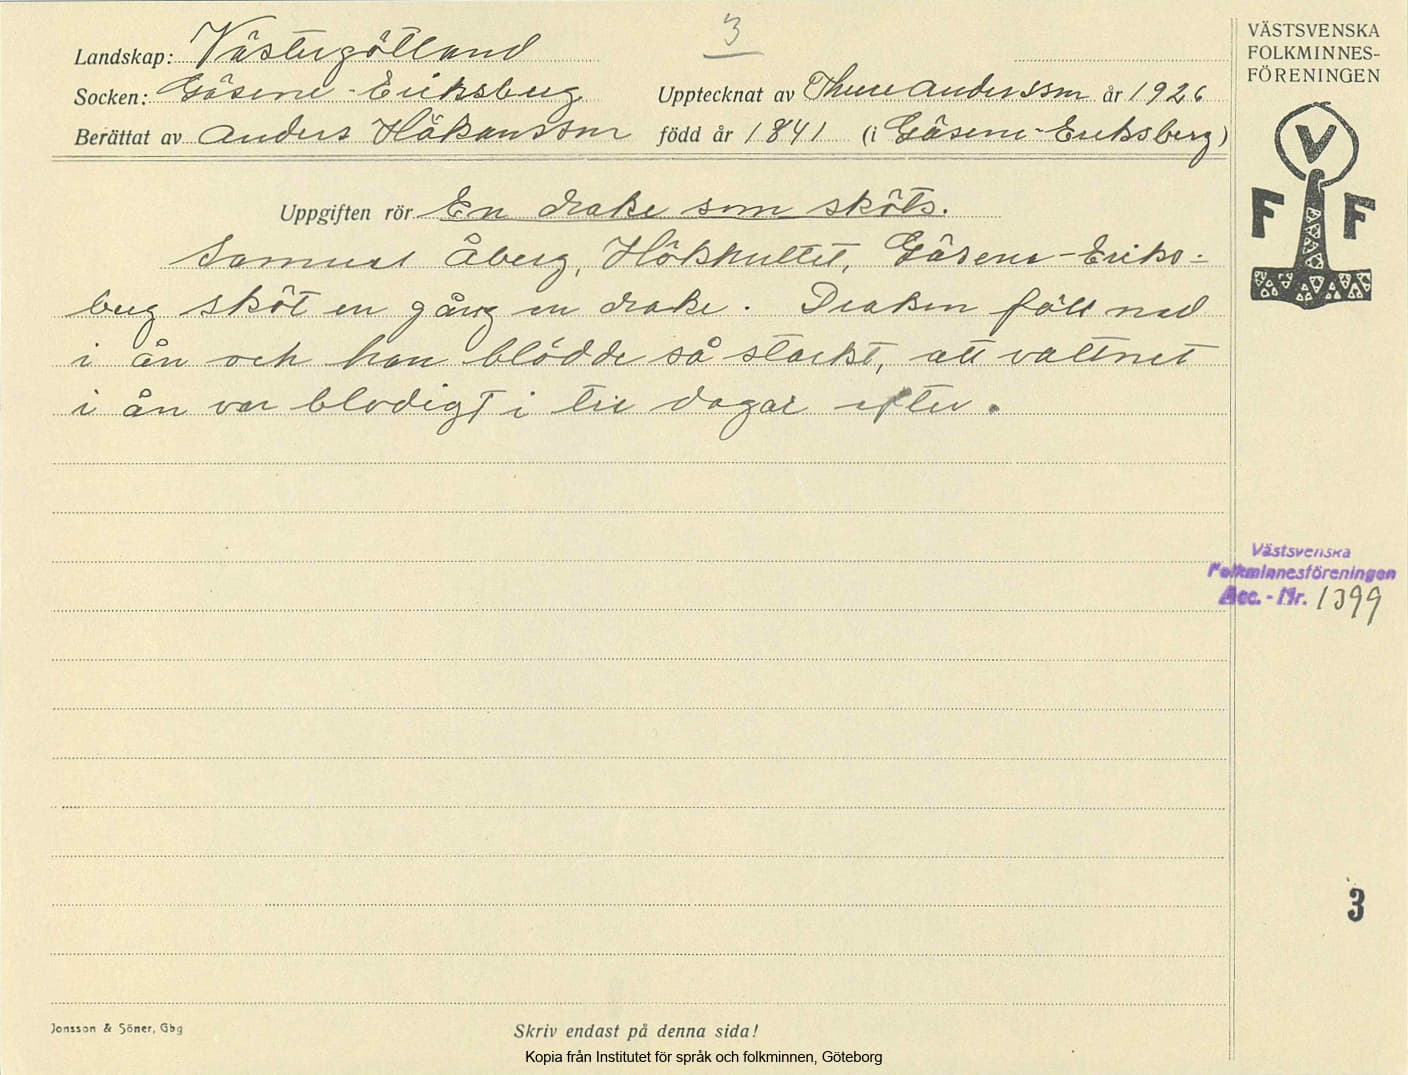 3
Landskap: Västergötland
Socken: Gäsene-Eriksberg Upptecknat av Thure Andersson år 1926
Berättat av Anders Håkansson född år 1841 (i Gäsene-Eriksberg)
Uppgiften rör En drake som sköts.
Samuel Åberg, Hökhultet, Gäsene-Eriks-
berg sköt en gång en drake. Draken föll ned
i ån och han blödde så starkt, att vattnet
i ån var blodigt i tre dagar efter.
VÄSTSVENSKA
FOLKMINNES-
FÖRENINGEN
V
F F
Västsvenska
Folkminnesföreningen
Acc.-Nr. 1399
3
Jonsson & Söner, Gbg
Skriv endast på denna sida!
Kopia från Institutet för språk och folkminnen, Göteborg